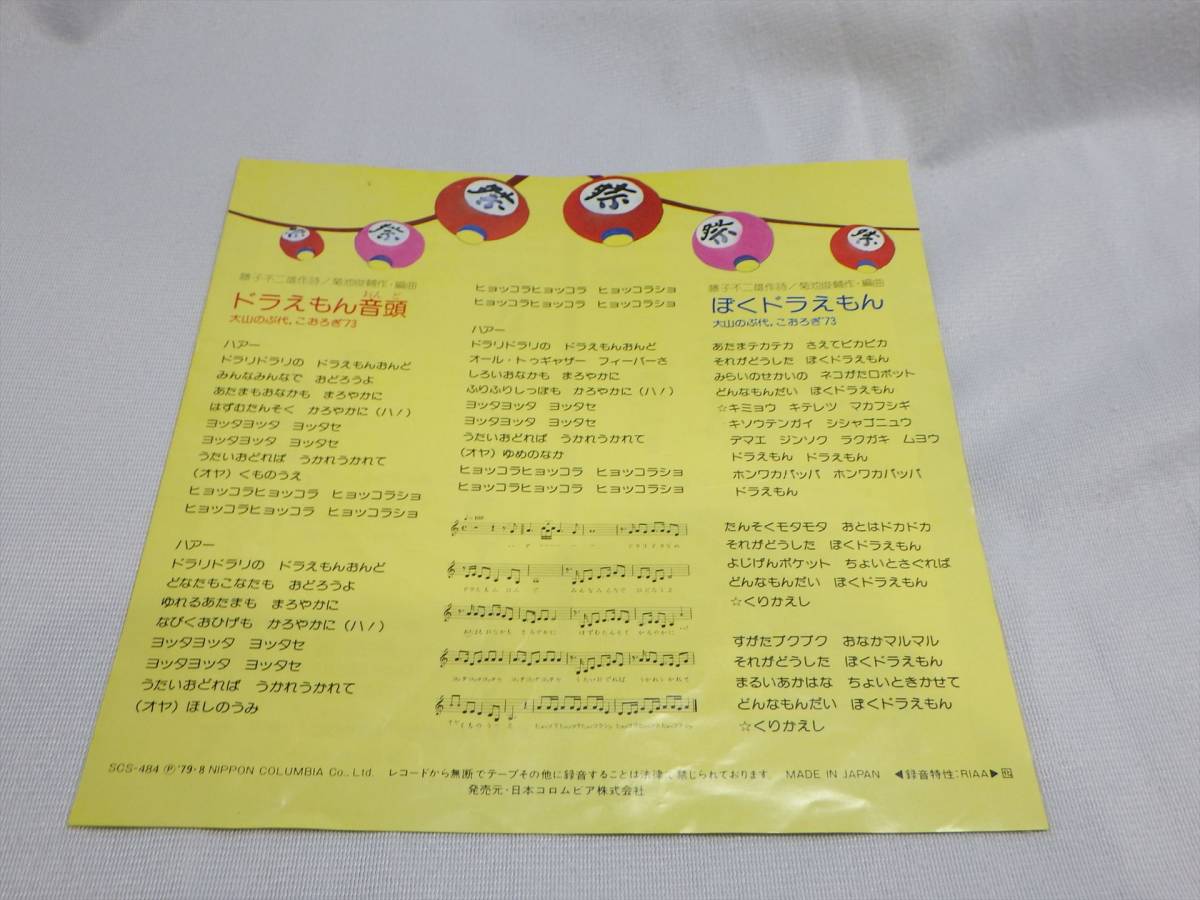 祭 祭 祭 祭 祭 祭
藤子不二雄作詩/菊池俊輔作・編曲
おんど
ドラえもん音頭
大山のぶ代,こおろぎ'73
ハアー
ドラリドラリの ドラえもんおんど
みんなみんなで おどろうよ
あたまもおなかも まろやかに
はずむたんそく かろやかに(ハ!)
ヨッタヨッタ ヨッタセ
ヨッタヨッタ ヨッタセ
うたいおどれば うかれうかれて
(オヤ)くものうえ
ヒョッコラヒョッコラ ヒョッコラショ
ヒョッコラヒョッコラ ヒョッコラショ
ハアー
ドラリドラリの ドラえもんおんど
どなたもこなたも おどろうよ
ゆれるあたまも まろやかに
なびくおひげも かろやかに(ハ!)
ヨッタヨッタ ヨッタセ
ヨッタヨッタ ヨッタセ
うたいおどれば うかれうかれて
(オヤ)ほしのうみ
ヒョッコラヒョッコラ ヒョッコラショ
ヒョッコラヒョッコラ ヒョッコラショ
ハアー
ドラリドラリの ドラえもんおんど
オール・トゥギャザー フィーバーさ
しろいおなかも まろやかに
ふりふりしっぽも かろやかに(ハ!)
ヨッタヨッタ ヨッタセ
ヨッタヨッタ ヨッタセ
うたいおどれば うかれうかれて
(オヤ)ゆめのなか
ヒョッコラヒョッコラ ヒョッコラショ
ヒョッコラヒョッコラ ヒョッコラショ
藤子不二雄作詩/菊池俊輔作・編曲
ぼくドラえもん
大山のぶ代,こおろぎ'73
あたまテカテカ さえてピカピカ
それがどうした ぼくドラえもん
みらいのせかいの ネコがたロボット
どんなもんだい ぼくドラえもん
☆キミョウ キテレツ マカフシギ
キソウテンガイ シシャゴニュウ
デマエ ジンソク ラクガキ ムヨウ
ドラえもん ドラえもん
ホンワカパッパ ホンワカパッパ
ドラえもん
たんそくモタモタ おとはドカドカ
それがどうした ぼくドラえもん
よじげんポケット ちょいとさぐれば
どんなもんだい ぼくドラえもん
☆くりかえし
すがたブクブク おなかマルマル
それがどうした ぼくドラえもん
まるいあかはな ちょいときかせて
どんなもんだい ぼくドラえもん
☆くりかえし
SCS-484 Ⓟ'79・8 NIPPON COLUMBIA Co., Ltd. レコードから無断でテープその他に録音することは法律で禁じられております。 MADE IN JAPAN ◀録音特性:RIAA▶
発売元・日本コロムビア株式会社